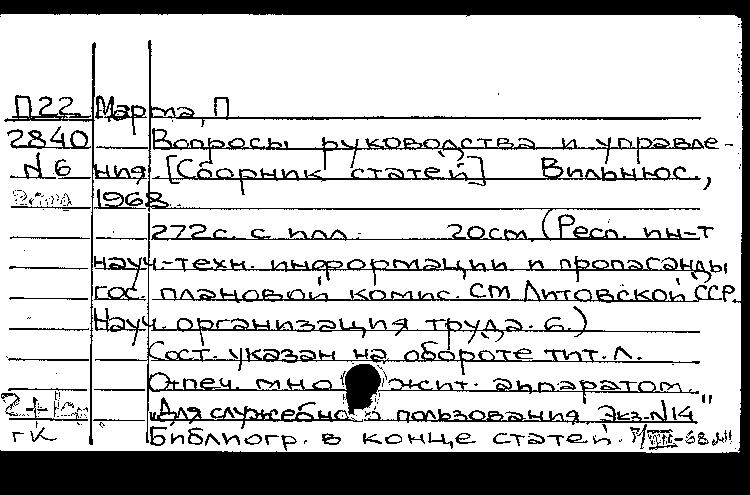 П22 Марта, П
2840 Вопросы руководства и управле-
N 6 ния. [Сборник статей] Вильнюс.,
1968.
272с. с илл. 20см. (Респ. ин-т
науч.-техн. информации и пропаганды
гос. плановой комис. СМ Литовской ССР.
Науч. организация труда. 6.)
Сост. указан на обороте тит. л.
Отпеч. мно жит. аппаратом.
2+1 "Для служебного пользования Экз. N14"
ГК Библиогр. в конце статей.